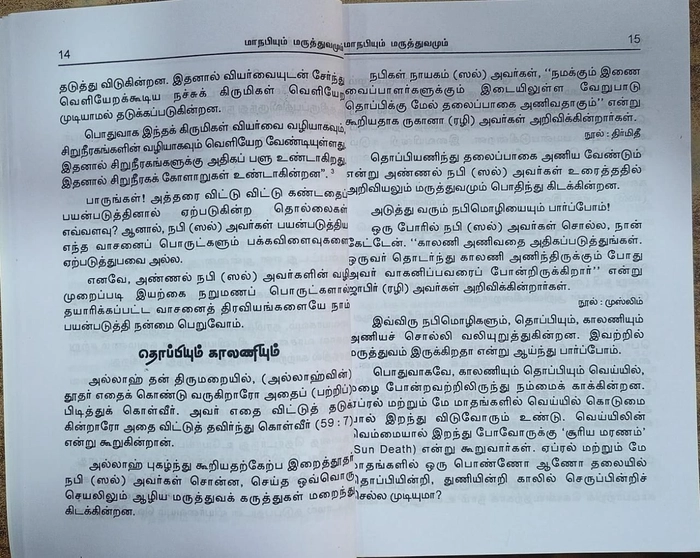 14
மாநபியும் மருத்துவமும்
தடுத்து விடுகின்றன. இதனால் வியர்வையுடன் சேர்ந்து
வெளியேறக்கூடிய நச்சுக் கிருமிகள் வெளியேற
முடியாமல் தடுக்கப்படுகின்றன.
பொதுவாக இந்தக் கிருமிகள் வியர்வை வழியாகவும்,
சிறுநீரகங்களின் வழியாகவும் வெளியேற வேண்டியுள்ளது.
இதனால் சிறுநீரகங்களுக்கு அதிகப் பளு உண்டாகிறது.
இதனால் சிறுநீரகக் கோளாறுகள் உண்டாகின்றன”. ³
பாருங்கள்! அத்தரை விட்டு விட்டு கண்டதைப்
பயன்படுத்தினால் ஏற்படுகின்ற தொல்லைகள்
எவ்வளவு? ஆனால், நபி (ஸல்) அவர்கள் பயன்படுத்திய
எந்த வாசனைப் பொருட்களும் பக்கவிளைவுகளை
ஏற்படுத்துபவை அல்ல.
எனவே, அண்ணல் நபி (ஸல்) அவர்களின் வழி
முறைப்படி இயற்கை நறுமணப் பொருட்களால்
தயாரிக்கப்பட்ட வாசனைத் திரவியங்களையே நாம்
பயன்படுத்தி நன்மை பெறுவோம்.
தொப்பியும் காலணியும்
அல்லாஹ் தன் திருமறையில், (அல்லாஹ்வின்)
தூதர் எதைக் கொண்டு வருகிறாரோ அதைப் (பற்றிப்)
பிடித்துக் கொள்வீர். அவர் எதை விட்டுத் தடுக்
கின்றாரோ அதை விட்டுத் தவிர்ந்து கொள்வீர் (59 : 7)
என்று கூறுகின்றான்.
அல்லாஹ் புகழ்ந்து கூறியதற்கேற்ப இறைத்தூதர்
நபி (ஸல்) அவர்கள் சொன்ன, செய்த ஒவ்வொரு
செயலிலும் ஆழிய மருத்துவக் கருத்துகள் மறைந்து
கிடக்கின்றன.
மாநபியும் மருத்துவமும்
15
நபிகள் நாயகம் (ஸல்) அவர்கள், “நமக்கும் இணை
வைப்பாளர்களுக்கும் இடையிலுள்ள வேறுபாடு
தொப்பிக்கு மேல் தலைப்பாகை அணிவதாகும்” என்று
கூறியதாக ருகானா (ரழி) அவர்கள் அறிவிக்கிறார்கள்.
நூல் : திர்மிதீ
தொப்பியணிந்து தலைப்பாகை அணிய வேண்டும்
என்று அண்ணல் நபி (ஸல்) அவர்கள் உரைத்ததில்
அறிவியலும் மருத்துவமும் பொதிந்து கிடக்கின்றன.
அடுத்து வரும் நபிமொழியையும் பார்ப்போம்!
ஒரு போரில் நபி (ஸல்) அவர்கள் சொல்ல, நான்
கேட்டேன். “காலணி அணிவதை அதிகப்படுத்துங்கள்.
ஒருவர் தொடர்ந்து காலணி அணிந்திருக்கும் போது
அவர் வாகனிப்பவரைப் போன்றிருக்கிறார்” என்று
ஜாபிர் (ரழி) அவர்கள் அறிவிக்கின்றார்கள்.
நூல் : முஸ்லிம்
இவ்விரு நபிமொழிகளும், தொப்பியும், காலணியும்
அணியச் சொல்லி வலியுறுத்துகின்றன. இவற்றில்
மருத்துவம் இருக்கிறதா என்று ஆய்ந்து பார்ப்போம்.
பொதுவாகவே, காலணியும் தொப்பியும் வெயில்,
மழை போன்றவற்றிலிருந்து நம்மைக் காக்கின்றன.
ஏப்ரல் மற்றும் மே மாதங்களில் வெயில் கொடுமை
யால் இறந்து விடுவோரும் உண்டு. வெயிலின்
வெம்மையால் இறந்து போவோருக்கு ‘சூரிய மரணம்’
(Sun Death) என்று கூறுவார்கள். ஏப்ரல் மற்றும் மே
மாதங்களில் ஒரு பொண்ணோ ஆணோ தலையில்
தொப்பியின்றி, துணியின்றி காலில் செருப்பின்றிச்
செல்ல முடியுமா?